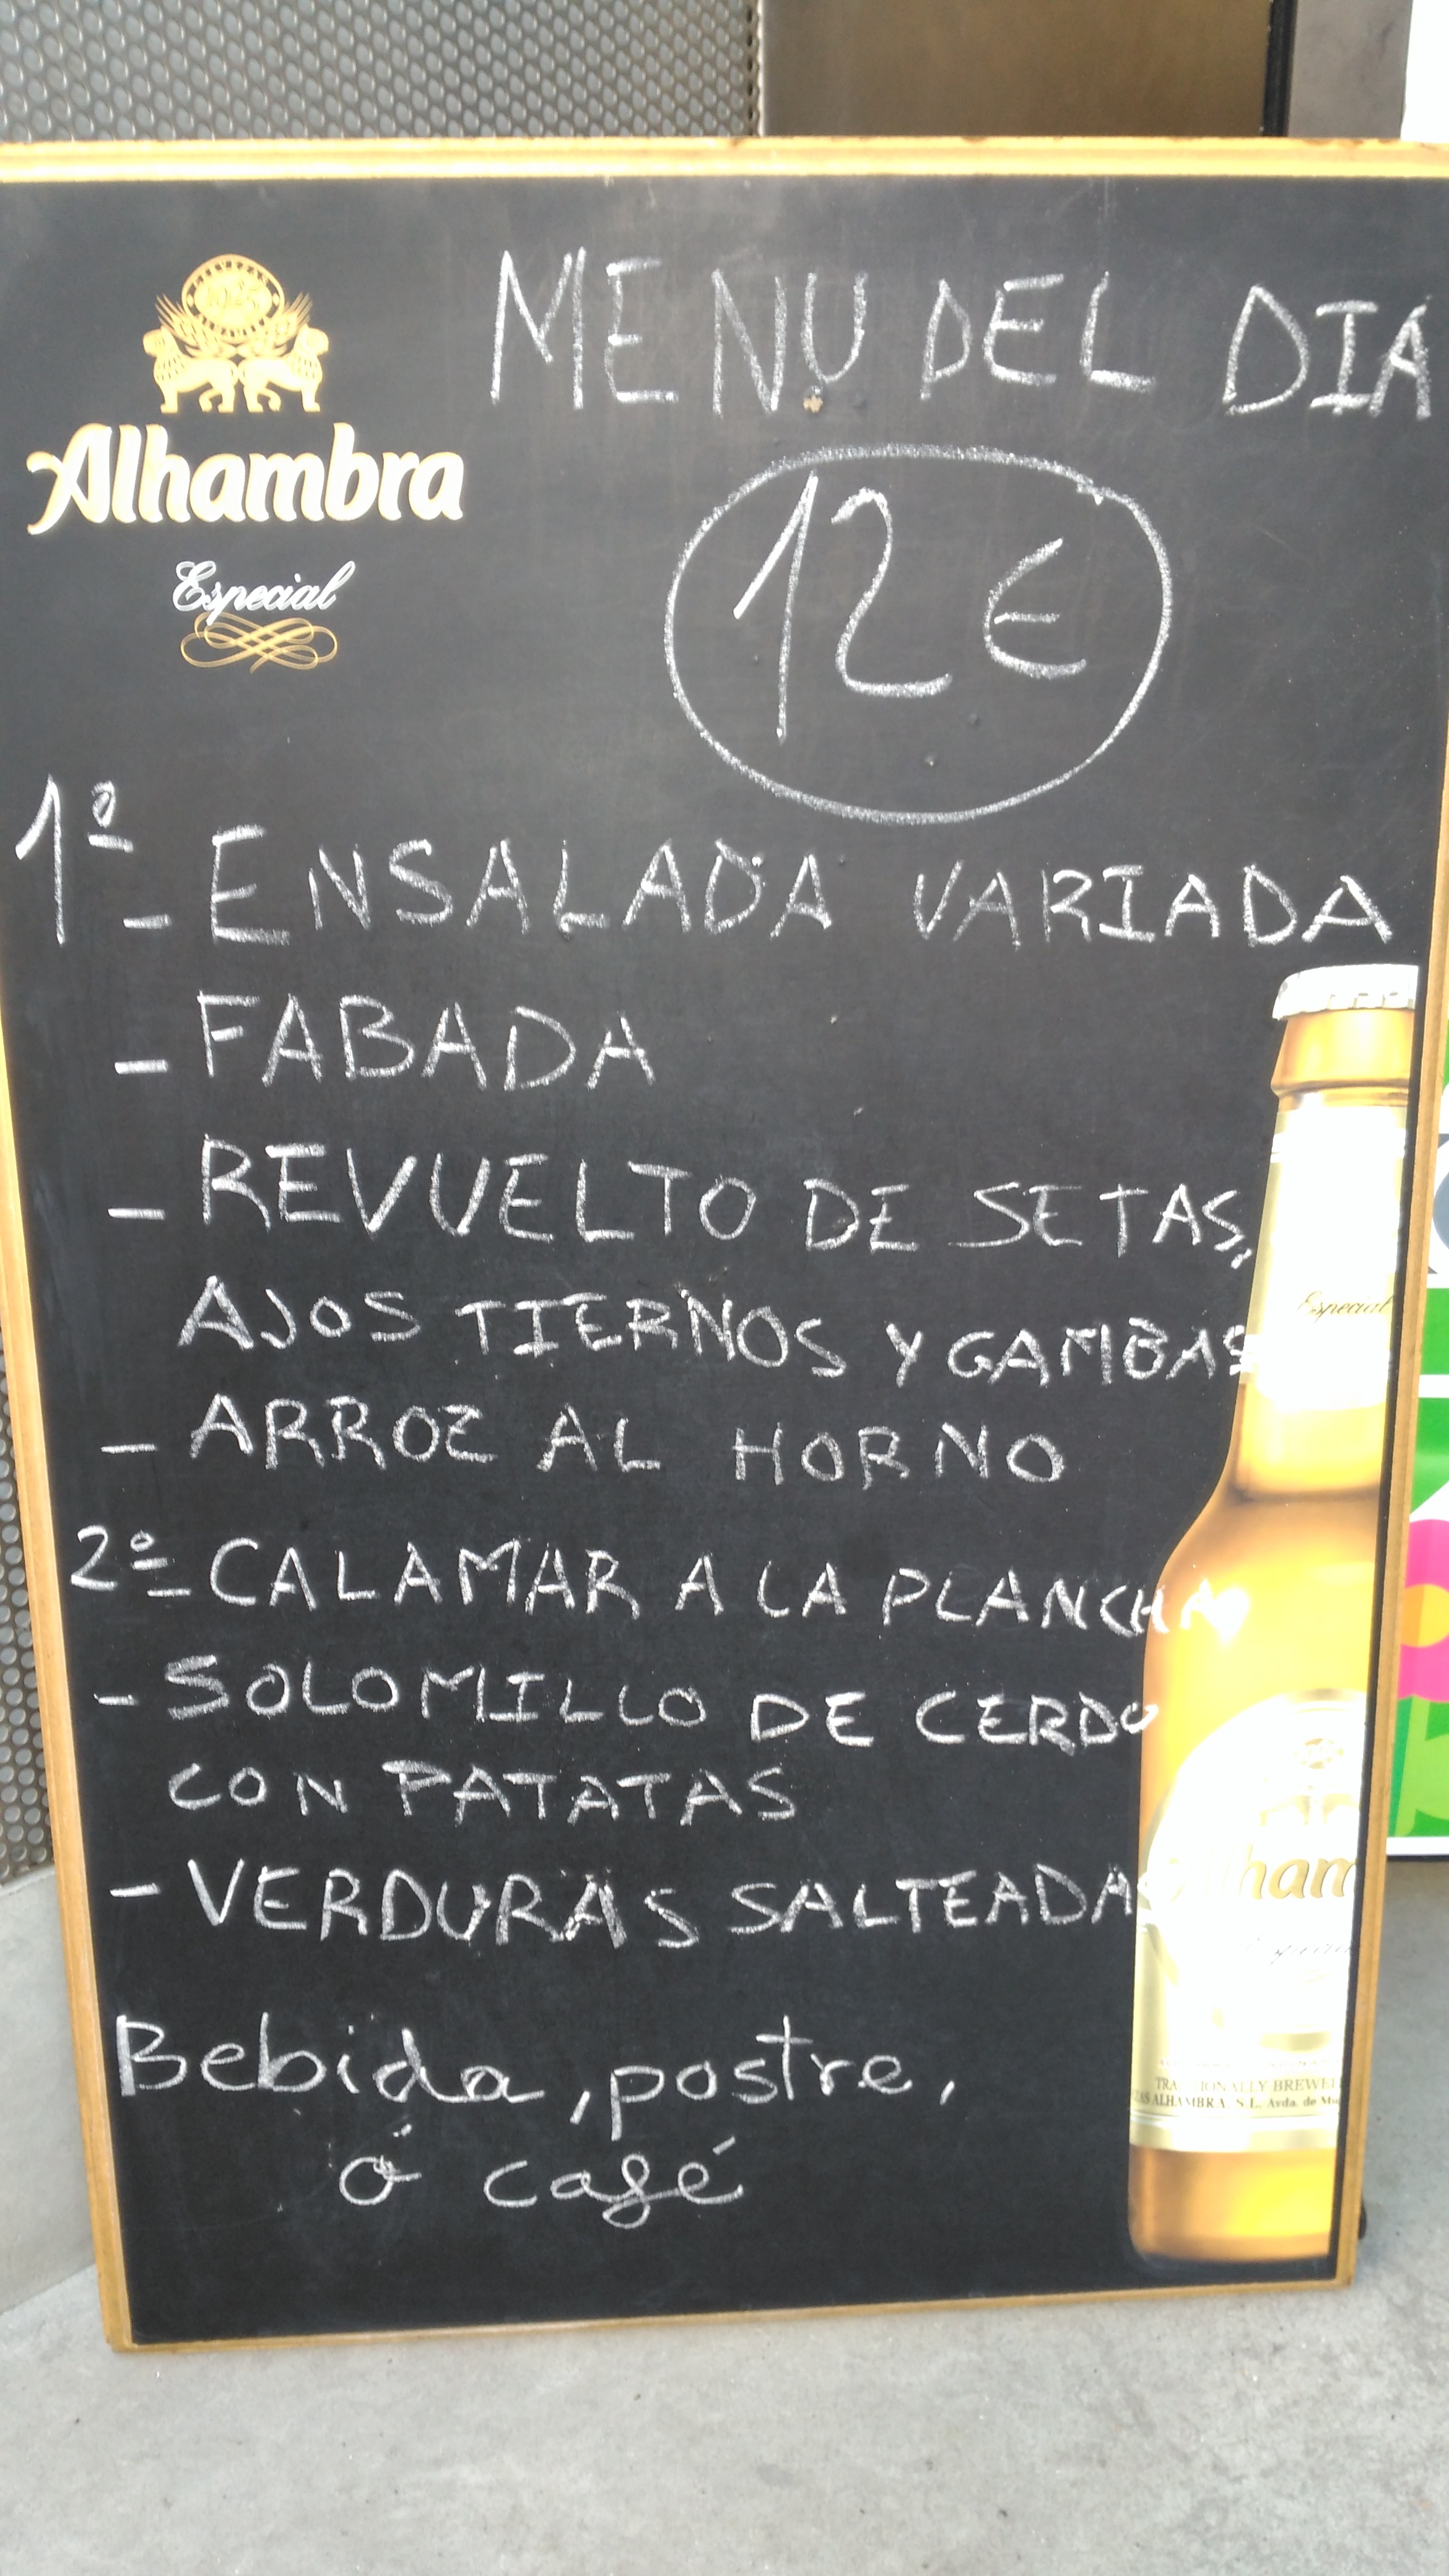 MENU DEL DIA
Alhambra
Especial
12 €
1º
- ENSALADA VARIADA
- FABADA
- REVUELTO DE SETAS,
AJOS TIERNOS Y GAMBAS
- ARROZ AL HORNO
2º - CALAMAR A LA PLANCHA
- SOLOMILLO DE CERDO
CON PATATAS
- VERDURAS SALTEADA
Bebida, postre,
ó café
Especial
Alham
Especial
TRADITIONALLY BREWE
ZAS ALHAMBRA, S.L. Avda. de Mu